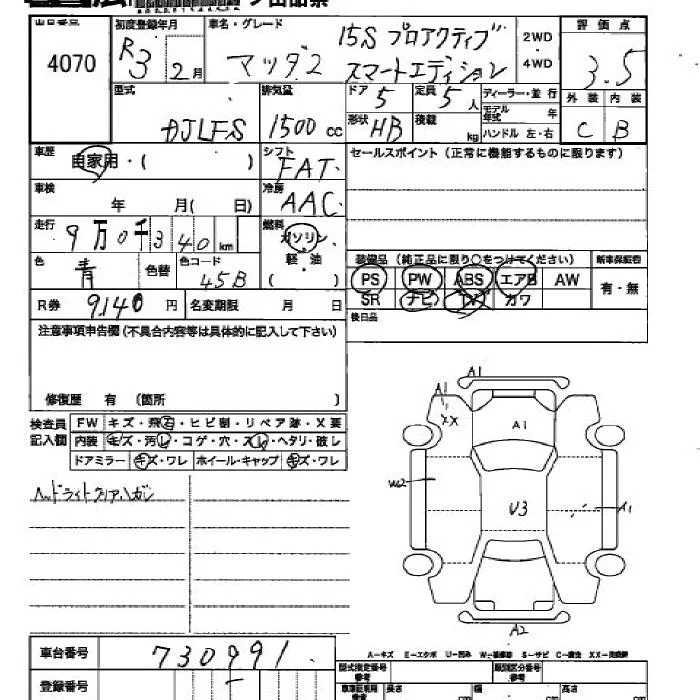 出品番号 4070
初度登録年月 R3 2月
車名・グレード マツダ2 15S プロアクティブ スマートエディション
2WD・4WD
評価点 3.5
外装 C 内装 B
型式 DJLFS
排気量 1500 cc
ドア 5 定員 5人 ディーラー・並行
形状 HB 積載 kg モデル年式 年
ハンドル 左・右
車歴 自家用・( )
シフト FAT
セールスポイント (正常に機能するものに限ります)
車検 年 月( 日)
冷房 AAC
走行 9万0千340km
燃料 ガソリン・軽油 ( )
色 青 色替 色コード 45B
装備品 (純正品に限り○をつけてください) 新車保証書
PS PW ABS エアB AW 有・無
SR ナビ TV カワ
後日品
R券 9,140円 名変期限 月 日
注意事項申告欄(不具合内容等は具体的に記入して下さい)
修復歴 有 (箇所 )
検査員記入欄 FW キズ・飛石・ヒビ割・リペア跡・X要
内装 キズ・汚レ・コゲ・穴・スレ・ヘタリ・破レ
ドアミラー キズ・ワレ ホイール・キャップ キズ・ワレ
ヘッドライトクリアハガシ
A1
A1
XX
A1
W2
U3
A1
A2
A-キズ E-エクボ U-凹み W-補修跡 S-サビ C-腐食 XX-交換歴
車台番号 730991
登録番号
型式指定番号 類別区分番号
長さ cm 幅 cm 高さ cm